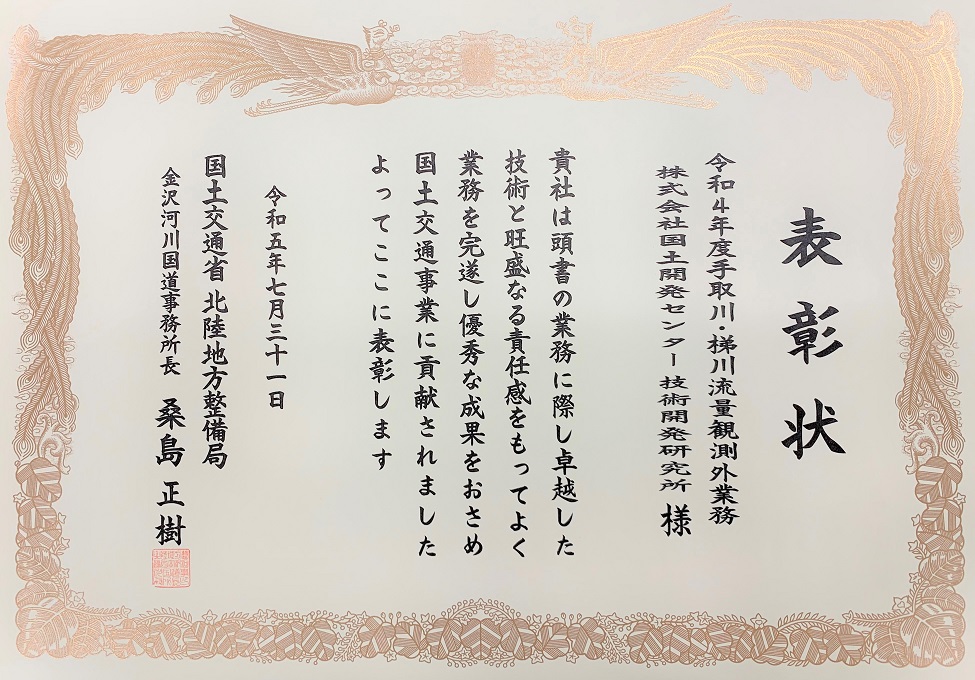 表彰状
令和4年度手取川・梯川流量観測外業務
株式会社国土開発センター 技術開発研究所 様
貴社は頭書の業務に際し卓越した
技術と旺盛なる責任感をもってよく
業務を完遂し優秀な成果をおさめ
国土交通事業に貢献されました
よってここに表彰します
令和五年七月三十一日
国土交通省 北陸地方整備局
金沢河川国道事務所長 桑島 正樹